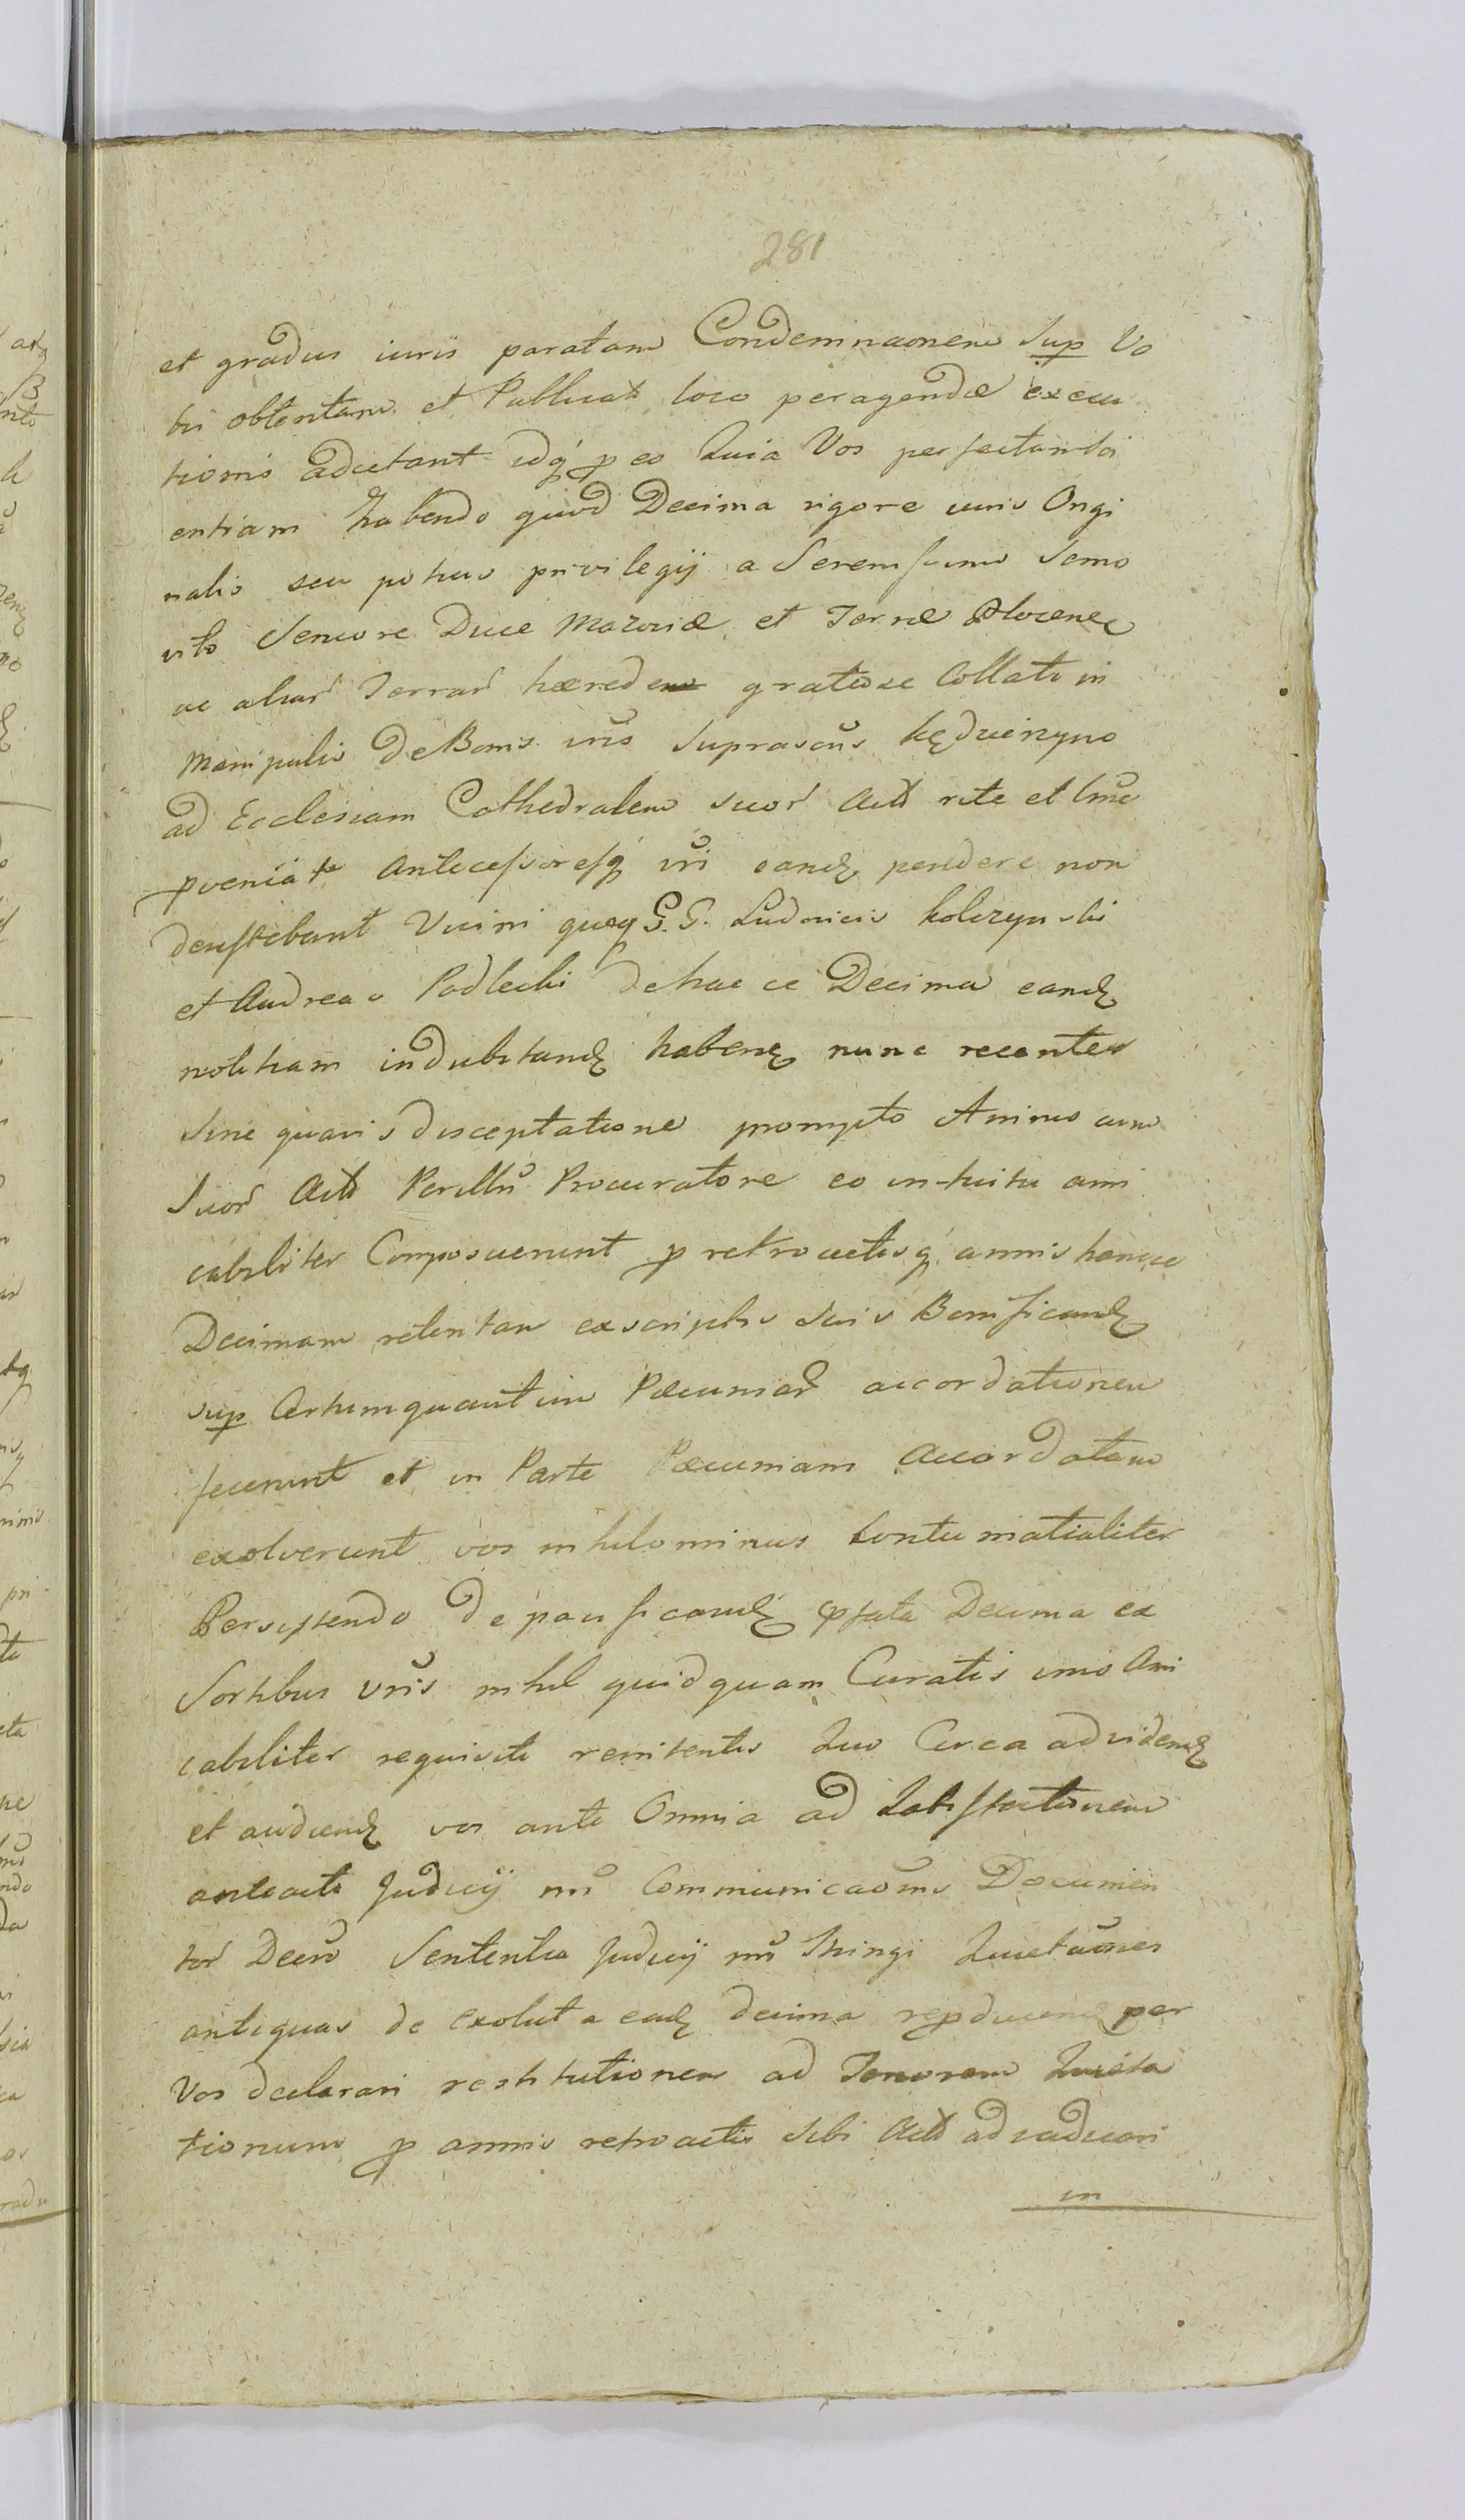 281
et gradus iuris paratam Condemnaonem sup Vo
bis obtentam et Publicat loco peragendæ execu
tionis adcitant idq́ p eo Quia Vos perfectam sci
entiam habendo quod Decima vigore iuris Origi
nalis seu potius privilegÿ a Serenissimo Semo
vito Seniore Duce Mazoviæ et Terræ Plocenę
ac aliar Terrar hærede gratiose Collati in
Manipulis de Bonis vris suprascris Kędzierzyno
ad Ecclesiam Cathedralem suor Actt rite et lme
pveniat Antecessoresq́ vri eandę pendere non
desistebant Vicini quoq G.G. Ludovicus Kolczynski
et Andreas Podlecki de hac ce Decima eandę
notitiam indubitandę habenę nunc recenter
sine quavis disceptatione prompto Animo cum
Suor Actt Perillri Procuratore eo intuitu ami
cabiliter Composuerunt p retroactisq́ annis hancce
Decimam retentam ex scriptis suis Bonificandę
sup Certum quantum Pæcuniar accordationem
fecerunt et in Parte Pæcuniam Accordatam
exolverunt vos nihilominus Contumatialiter
Persistendo de pacificandę pfata Decima ex
Sortibus vris nihil quidquam Curatis imo Ami
cabiliter requisiti renitentis Quo Circa ad videndę
et audiendę vos ante Omnia ad Satisfactionem
anteacti Judicÿ nri Communicaoms Documen
tor Decro Sententia Judicÿ nri Stringi Quietaones
antiquas de exoluta eadę decima repducendę per
Vos declarari restitutionem ad Tenorem Quieta
tionum p annis retroactis sibi Actt adiudicari
in